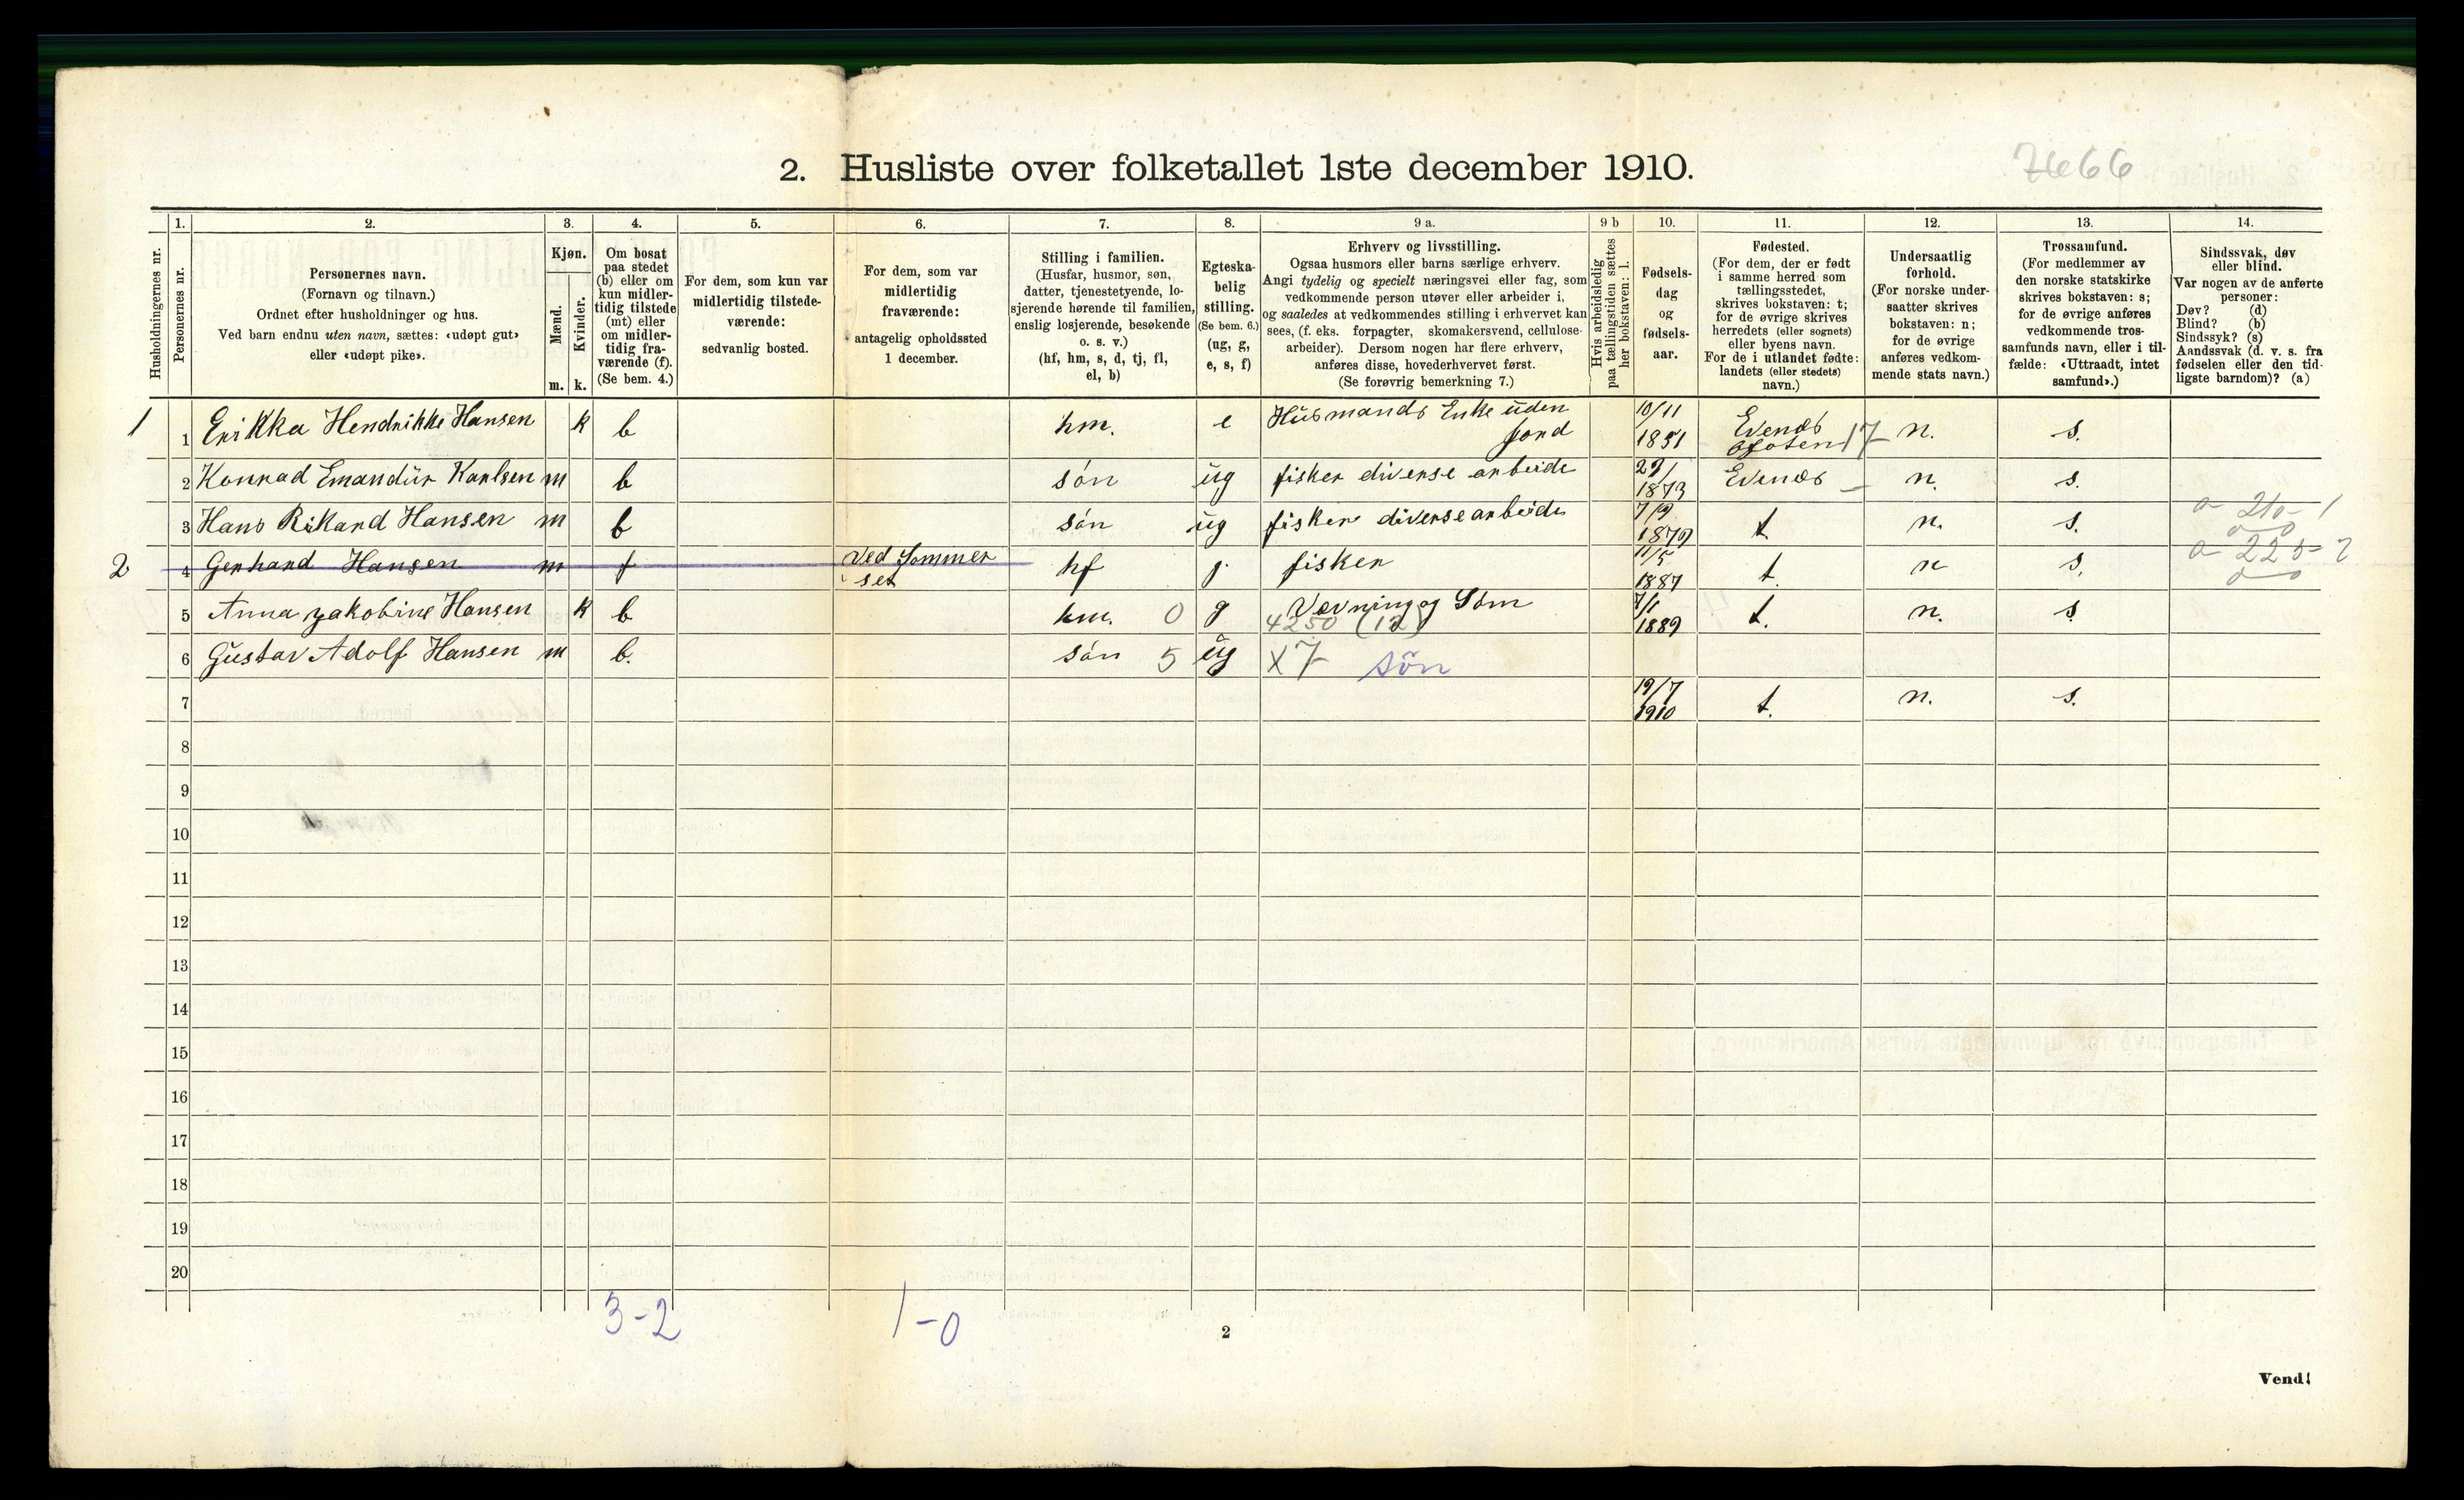 2. Husliste over folketallet 1ste december 1910.
7666
Husholdningernes nr.
1.
Personernes nr.
2.
Personernes navn.
(Fornavn og tilnavn.)
Ordnet efter husholdninger og hus.
Ved barn endnu uten navn, sættes: «udøpt gut»
eller «udøpt pike».
3.
Kjøn.
Mænd.
Kvinder.
m. k.
4.
Om bosat
paa stedet
(b) eller om
kun midler-
tidig tilstede
(mt) eller
om midler-
tidig fra-
værende (f).
(Se bem. 4.)
5.
For dem, som kun var
midlertidig tilstede-
værende:
sedvanlig bosted.
6.
For dem, som var
midlertidig
fraværende:
antagelig opholdssted
1 december.
7.
Stilling i familien.
(Husfar, husmor, søn,
datter, tjenestetyende, lo-
sjerende hørende til familien,
enslig losjerende, besøkende
o. s. v.)
(hf, hm, s, d, tj, fl,
el, b)
8.
Egteska-
belig
stilling.
(Se bem. 6.)
(ug, g,
e, s, f)
9 a.
Erhverv og livsstilling.
Ogsaa husmors eller barns særlige erhverv.
Angi tydelig og specielt næringsvei eller fag, som
vedkommende person utøver eller arbeider i,
og saaledes at vedkommendes stilling i erhvervet kan
sees, (f. eks. forpagter, skomakersvend, cellulose-
arbeider). Dersom nogen har flere erhverv,
anføres disse, hovederhvervet først.
(Se forøvrig bemerkning 7.)
9 b
Hvis arbeidsledig
paa tællingstiden sættes
her bokstaven: l.
10.
Fødsels-
dag
og
fødsels-
aar.
11.
Fødested.
(For dem, der er født
i samme herred som
tællingsstedet,
skrives bokstaven: t;
for de øvrige skrives
herredets (eller sognets)
eller byens navn.
For de i utlandet fødte:
landets (eller stedets)
navn.)
12.
Undersaatlig
forhold.
(For norske under-
saatter skrives
bokstaven: n;
for de øvrige
anføres vedkom-
mende stats navn.)
13.
Trossamfund.
(For medlemmer av
den norske statskirke
skrives bokstaven: s;
for de øvrige anføres
vedkommende tros-
samfunds navn, eller i til-
fælde: «Uttraadt, intet
samfund».)
14.
Sindssvak, døv
eller blind.
Var nogen av de anførte
personer:
Døv? (d)
Blind? (b)
Sindssyk? (s)
Aandssvak (d. v. s. fra
fødselen eller den tid-
ligste barndom)? (a)
1 1 Erikka Hendrikke Hansen k b hm. e Husmands Enke uden jord 10/11 1851 Evenes Ofoten 17 n. s.
2 Konrad Emandur Karlsen m b søn ug fisker diverse arbeide 29/1 1873 Evenes n. s.
3 Hans Rikard Hansen m b søn ug fisker diverse arbeide 7/9 1879 t. n. s.
2 4 Gerhard Hansen m f Ved Sommerset hf g. fisker 11/5 1887 t. n s.
5 Anna Jakobine Hansen k b hm. 0 g Vævning og Søm 4250 (12) 7/1 1889 t. n. s
6 Gustav Adolf Hansen m b. søn 5 ug X7 søn
7 19/7 1910 t. n. s.
8
9
10
11
12
13
14
15
16
17
18
19
20
3-2 1-0
2
Vend!